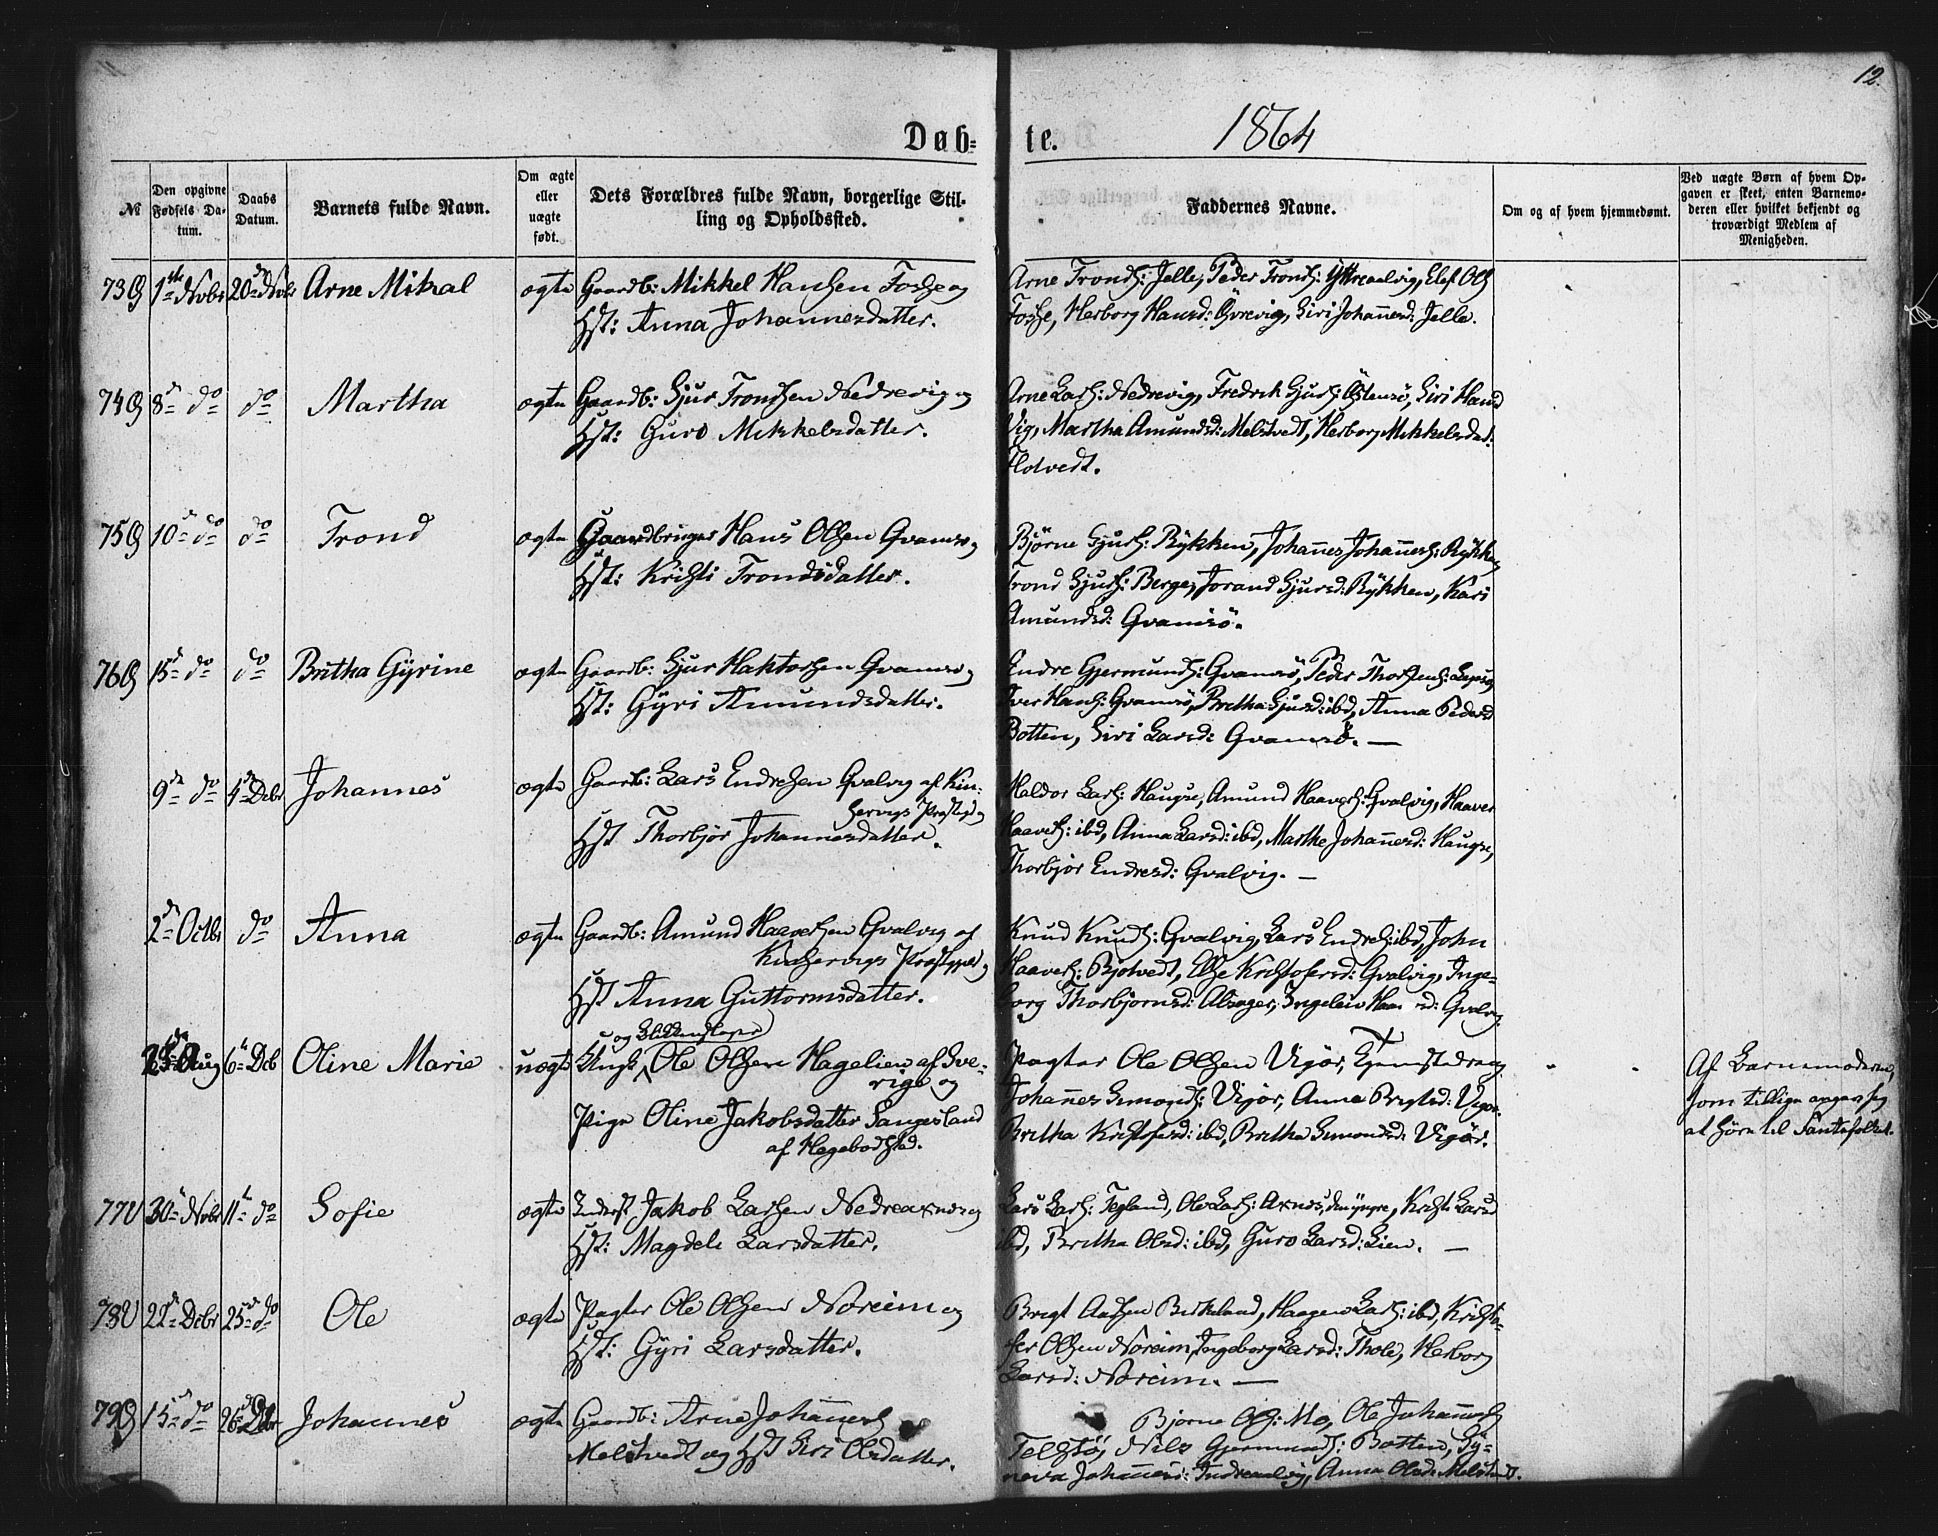 12.
Døb-
te. 1864
№
Den opgivne Fødsels Datum.
Daabs Datum.
Barnets fulde Navn.
Om ægte eller uægte født.
Dets Forældres fulde Navn, borgerlige Stilling og Opholdssted.
Faddernes Navne.
Om og af hvem hjemmedøbt.
Ved uægte Børn af hvem Opgaven er skeet, enten Barnemoderen eller hvilket bekjendt og troværdigt Medlem af Menigheden.
73 1ste Novbr 20de Novbr Arne Mikal ægte Gaardb: Mikkel Hansen Fosse og
Hst: Anna Johannesdatter.
Arne Tronds: Jelle, Peder Tronds: Yttreaalvig, Elef Ols
Fosse, Herborg Hansd: Øvrevig, Siri Johannesd: Jelle.
74 8de do do Martha ægte Gaardb: Sjur Trondsen Nedrevig og
Hst: Guro Mikkelsdatter.
Arne Lars: Nedrevig, Fredrik Sjurs: Østensø, Siri Hansd
Vig, Martha Amundsd: Melstvedt, Herborg Mikkelsdat:
Flotvedt.
75 10de do do Trond ægte Gaardbruger Hans Olsen Qvamsø og
Hst: Kristi Trondsdatter.
Bjørne Sjurs: Rykken, Johannes Johannes: Rykken
Trond Sjurs: Berge, Jorand Sjursd: Rykken, Kari
Amundsd: Qvamsö.
76 15de do do Britha Gyrine ægte Gaardb: Sjur Haktorsen Qvamsø og
Hst: Gyri Amundsdatter.
Endre Gjermunds: Qvamsö, Peder Thorstens:
Iver Hans: Qvamsö, Britha Sjursd: ibd, Anna Pedersd
Botten, Siri Larsd: Qvamsö. —
9de do 4de Debr Johannes ægte Gaardb: Lars Endresen Qvalvig af Kin-
servigs Præstegd og
Hst Thorbjør Johannesdatter.
Haldor Lars: Haugse, Amund Haavers: Qvalvig, Haaver
Haavers: ibd, Anna Larsd: ibd, Marthe Johannesd: Haugse,
Thorbjør Endresd: Qvalvig. —
2de Octbr do Anna ægte Gaardb: Amund Haaversen Qvalvig af
Kinservigs Præstegjeld og
Hst Anna Guttormsdatter.
Knud Knuds: Qvalvig, Lars Endres: ibd, John
Haavers: Bjotvedt, Else Kristofersd: Qvalvig, Inge-
borg Thorbjørnsd: Alsager, Ingeleiv Qvalvig
Aug 6te Deb Oline Marie uægte Ungk og Blikkenslager Ole Olsen Hagelien af Sve-
rige og
Pige Oline Jakobsdatter Sangesland
af Hegebostad.
Pagter Ole Olsen Vigør, Tjenestedreng
Johannes Simonds: Vigør, Anna Brigtsd: Vigør.
Britha Kristofersd: ibd, Britha Simonsd: Vigør.
Af Barnemoderen,
som tillige angav sig
at høre til Fantefolket.
77 30te Novbr 11te do Sofie ægte Inderst Jakob Larsen Nedreaxnes og
Hst: Magdeli Larsdatter.
Lars Lars: Tegland, Ole Lars: Axnes, den yngre, Kristi Larsd
ibd, Britha Olsd: ibd, Guro Larsd: Lien. —
78 22de Debr 25de do Ole ægte Pagter Ole Olsen Noreim og
Hst: Gyri Larsdatter.
Brigt Birkeland, Haagen Lars: ibd, Kristo-
fer Olsen Noreim, Ingeborg Larsd: Thole, Herborg
Larsd: Noreim. —
79 15de do 26de Debr Johannes ægte Gaardb: Arne Johannes
Melstvedt og Hst Siri Olsdatter.
Bjørne Ols: Mo, Ole Johannes
Telstö, Nils Gjermunds: Botten, Sy-
neva Johannesd: Indreaalvig, Anna Olsd: Melstvedt.